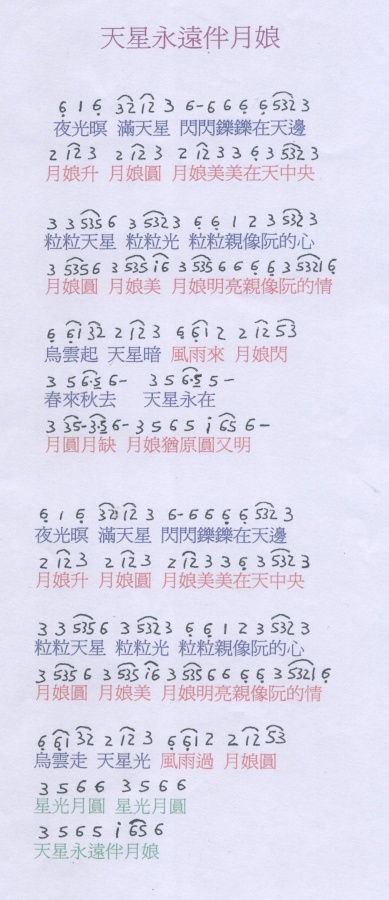 天星永遠伴月娘
6 1 6 32 12 3 6-6 6 6 6 532 3
夜光暝 滿天星 閃閃鑠鑠在天邊
2 12 3 2 12 3 2 12 3 3 6 3 532 3
月娘升 月娘圓 月娘美美在天中央
3 3 535 6 3 532 3 6 6 1 2 3 532 3
粒粒天星 粒粒光 粒粒親像阮的心
3 535 6 3 535 i6 3 535 6 6 6 6 3 5321 6
月娘圓 月娘美 月娘明亮親像阮的情
6 61 32 2 12 3 6 61 2 2 12 53
烏雲起 天星暗 風雨來 月娘閃
3 5 6·5 6- 3 5 6·5 5-
春來秋去 天星永在
3 35-3·5 6- 3 5 6 5 i 65 6-
月圓月缺 月娘猶原圓又明
6 1 6 32 12 3 6-6 6 6 6 532 3
夜光暝 滿天星 閃閃鑠鑠在天邊
2 12 3 2 12 3 2 12 3 3 6 3 532 3
月娘升 月娘圓 月娘美美在天中央
3 3 535 6 3 532 3 6 6 1 2 3 532 3
粒粒天星 粒粒光 粒粒親像阮的心
3 535 6 3 535 i6 3 535 6 6 6 6 3 5321 6
月娘圓 月娘美 月娘明亮親像阮的情
6 61 32 2 12 3 6 61 2 2 12 53
烏雲走 天星光 風雨過 月娘圓
3 5 6 6 3 5 6 6
星光月圓 星光月圓
3 5 6 5 i 65 6
天星永遠伴月娘